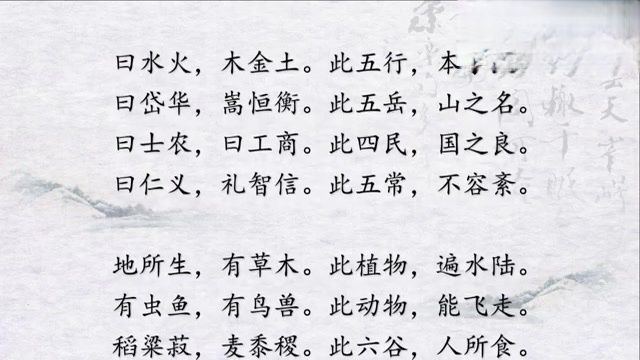 曰水火，木金土。此五行，本
曰岱华，嵩恒衡。此五岳，山之名。
曰士农，曰工商。此四民，国之良。
曰仁义，礼智信。此五常，不容紊。
地所生，有草木。此植物，遍水陆。
有虫鱼，有鸟兽。此动物，能飞走。
稻粱菽，麦黍稷。此六谷，人所食。